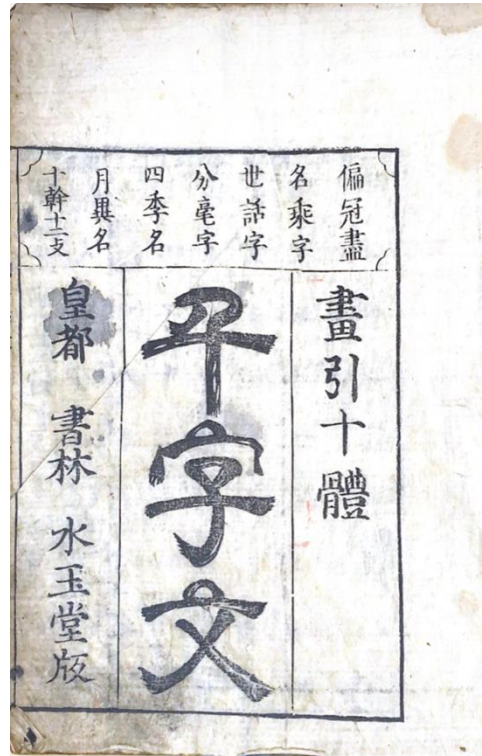 偏冠盡
名乘字
世話字
分毫字
四季名
月異名
十幹十二支
畫引十體
千字文
皇都 書林 水玉堂版